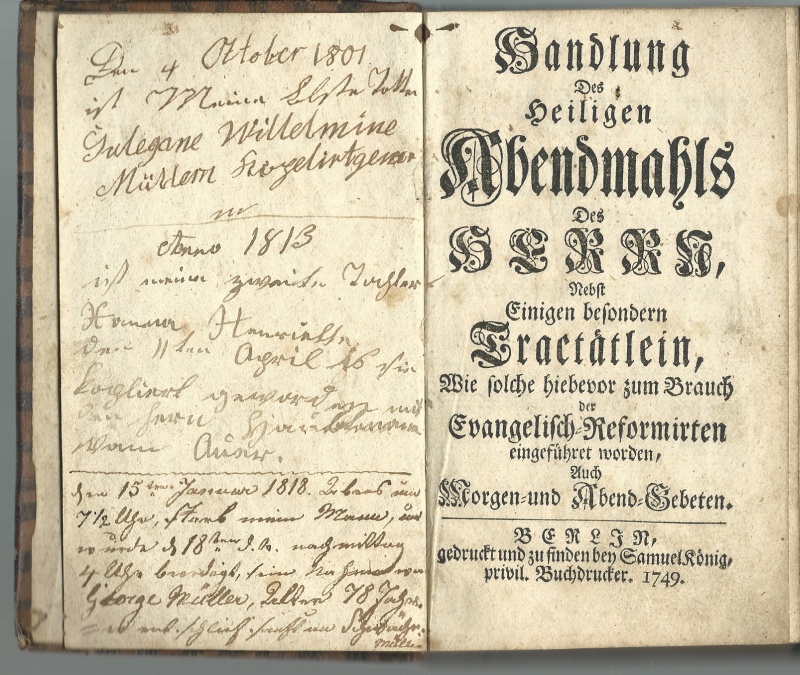 Den 4 Ottober 1801
ist Meine Elste Totter
Gulegane Willelmine
Müllern Kopelirtgewor
Anno 1813
ist meine zweite Tochter
Hanna Henriette
den 11ten April is sie
kopliert geworden mit
den Hern
vom
den 15ten Januar 1818. Abens um
7 1/2 Uhr, starb mein Mann, und
wurde d 18ten d. M. nachmittag
4 Uhr beerdigt, sein Nahme war
George Müller, Alter 78 Jahr
entschlief sanft an
Müller
Handlung
Des
Heiligen
Abendmahls
Des
HERRN,
Nebst
Einigen besondern
Tractätlein,
Wie solche hiebevor zum Brauch
der
Evangelisch-Reformirten
eingeführet worden,
Auch
Morgen-und Abend-Gebeten.
BERLIN,
gedruckt und zu finden bey Samuel König,
privil. Buchdrucker. 1749.